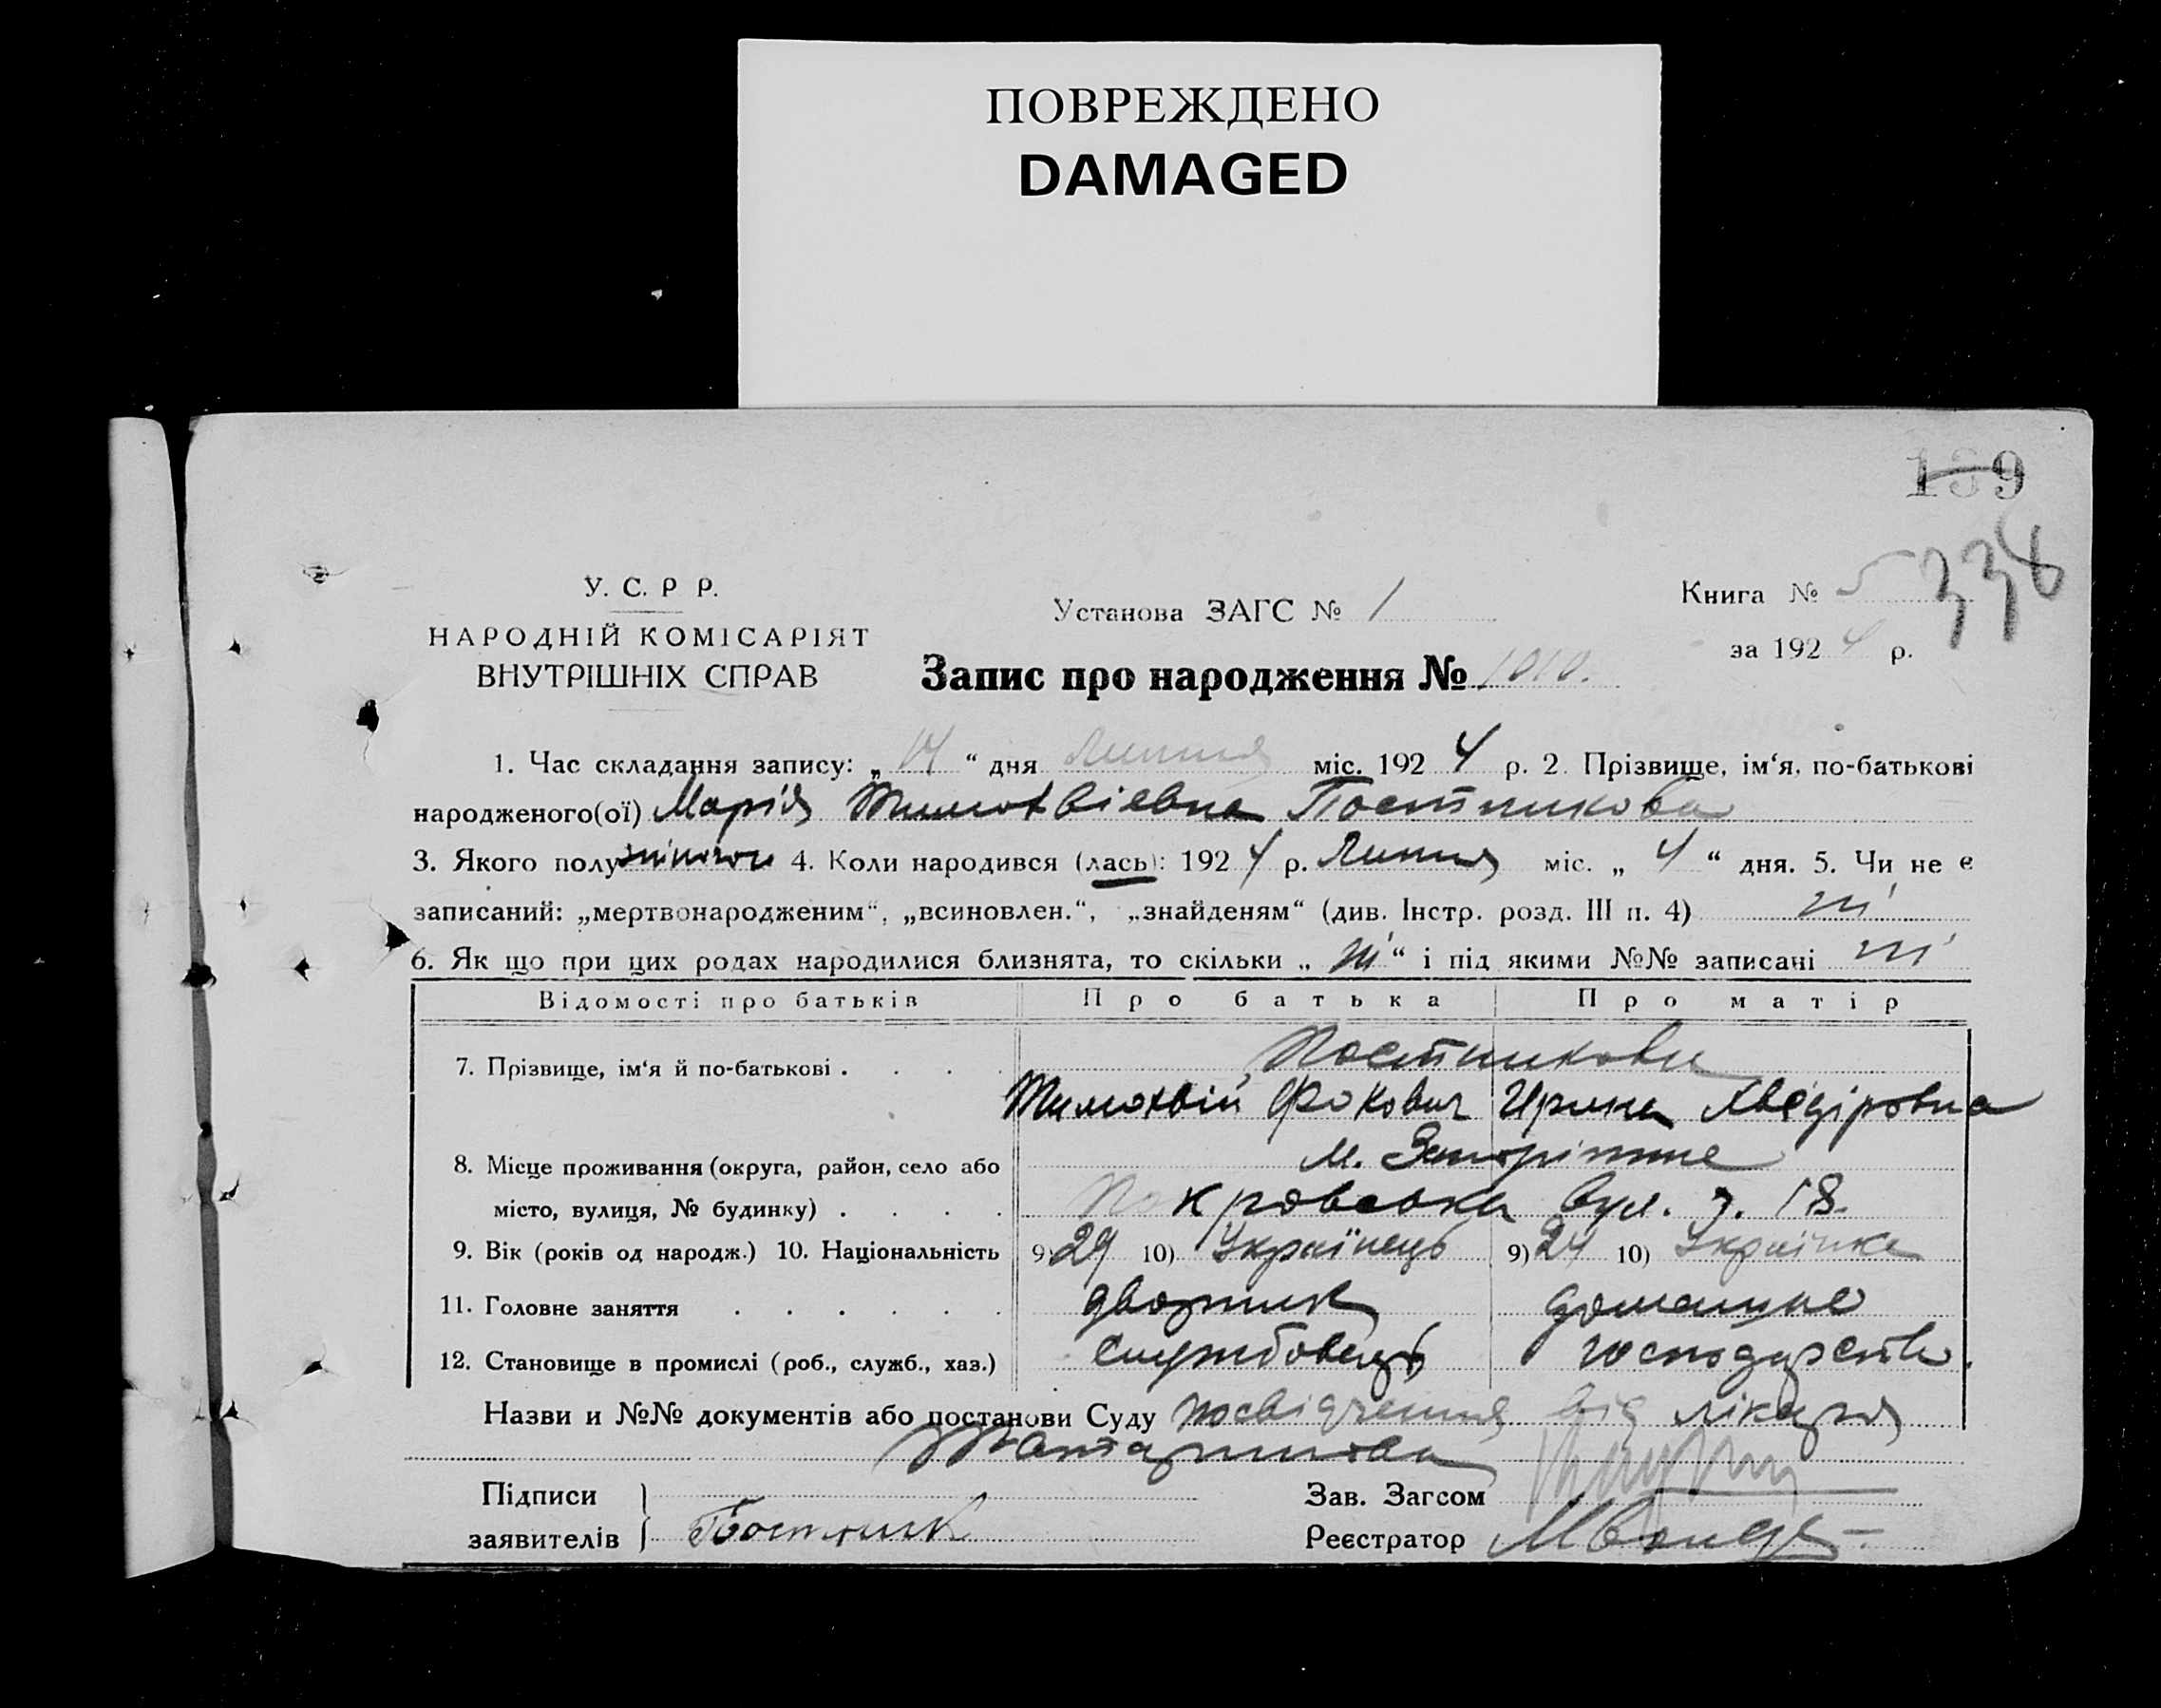 ПОВРЕЖДЕНО
DAMAGED
139
338
У. С. Р Р.
НАРОДНІЙ КОМІСАРІЯТ
ВНУТРІШНІХ СПРАВ
Установа ЗАГС № 1
Книга № 5
за 1924 р.
Запис про народження № 1010.
1. Час складання запису: „14“ дня Липня міс. 1924 р. 2. Прізвище, ім‘я, по-батькові
народженого(ої) Марія Тимохвіевна Постникова
3. Якого полу жіночого 4. Коли народився (лась): 1924 р. Липня міс. „4“ дня. 5. Чи не є
записаний: „мертвонародженим“, „всиновлен.“, „знайденям“ (див. Інстр. розд. III п. 4) ні
6. Як що при цих родах народилися близнята, то скільки „ні“ і під якими №№ записані ні
Відомості про батьків Про батька Про матір
7. Прізвище, ім‘я й по-батькові . . . . Постникови
Тимохвій Фокович Ирина Хведіровна
8. Місце проживання (округа, район, село або м. Запоріжже
місто, вулиця, № будинку) . . . . Покровська вул. 18.
9. Вік (років од народж.) 10. Національність 9) 29 10) Українець 9) 24 10) Українка
11. Головне заняття . . . . . . дворник домашне
12. Становище в промислі (роб., служб., хаз.) службовець господарство.
Назви и №№ документів або постанови Суду посвідчення від лікаря
Підписи
заявителів Постник
Зав. Загсом
Реєстратор